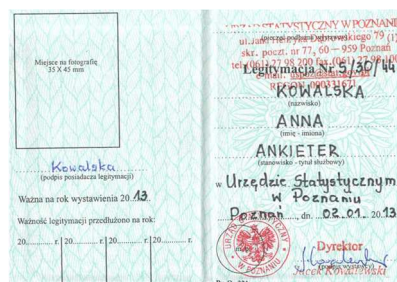 Miejsce na fotografię
35 X 45 mm
Kowalska
(podpis posiadacza legitymacji)
Ważna na rok wystawienia 2013
Ważność legitymacji przedłużono na rok:
20 r. 20 r. 20 r. 20 r.
STATYSTYCZNY W POZNANIU
ul. Jana Henryka Dąbrowskiego 79
skr. poczt. nr 77, 60 – 959 Poznań
tel. (061) 27 98 200
Legitymacja Nr 5/30/44
REGON 000331671
KOWALSKA
(nazwisko)
ANNA
(imię - imiona)
ANKIETER
(stanowisko - tytuł służbowy)
w Urzędzie Statystycznym
w Poznaniu
Poznań, dn. 02.01.2013
URZĄD STATYSTYCZNY
W POZNANIU
Dyrektor
Jacek Kowalewski